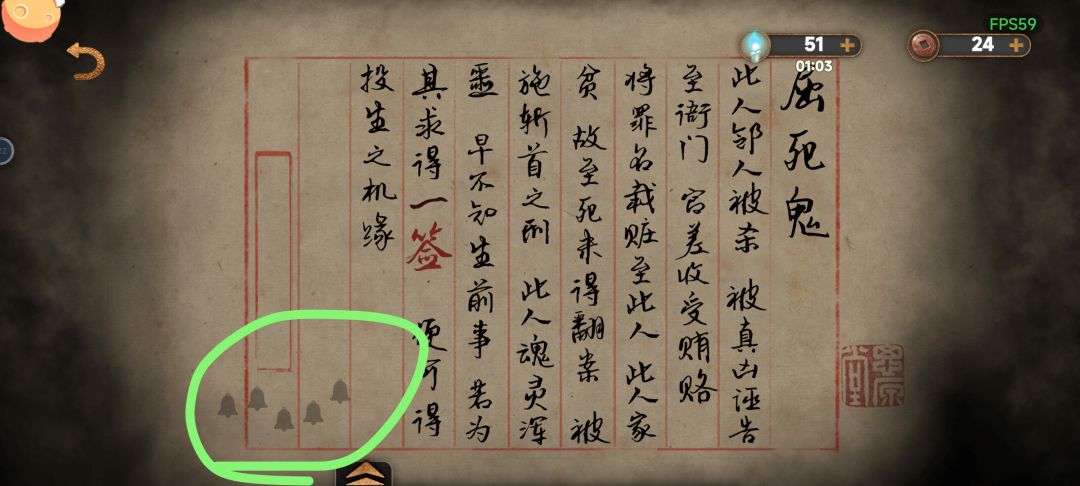 FPS59
51
24
01:03
屈死鬼
此人邻人被杀 被真凶诬告
至衙门 官差收受贿赂
将罪名栽赃至此人 此人家
贫 故至死未得翻案 被
施斩首之刑 此人魂灵浑
噩 早不知生前事 若为
其求得一签 便可得
投生之机缘